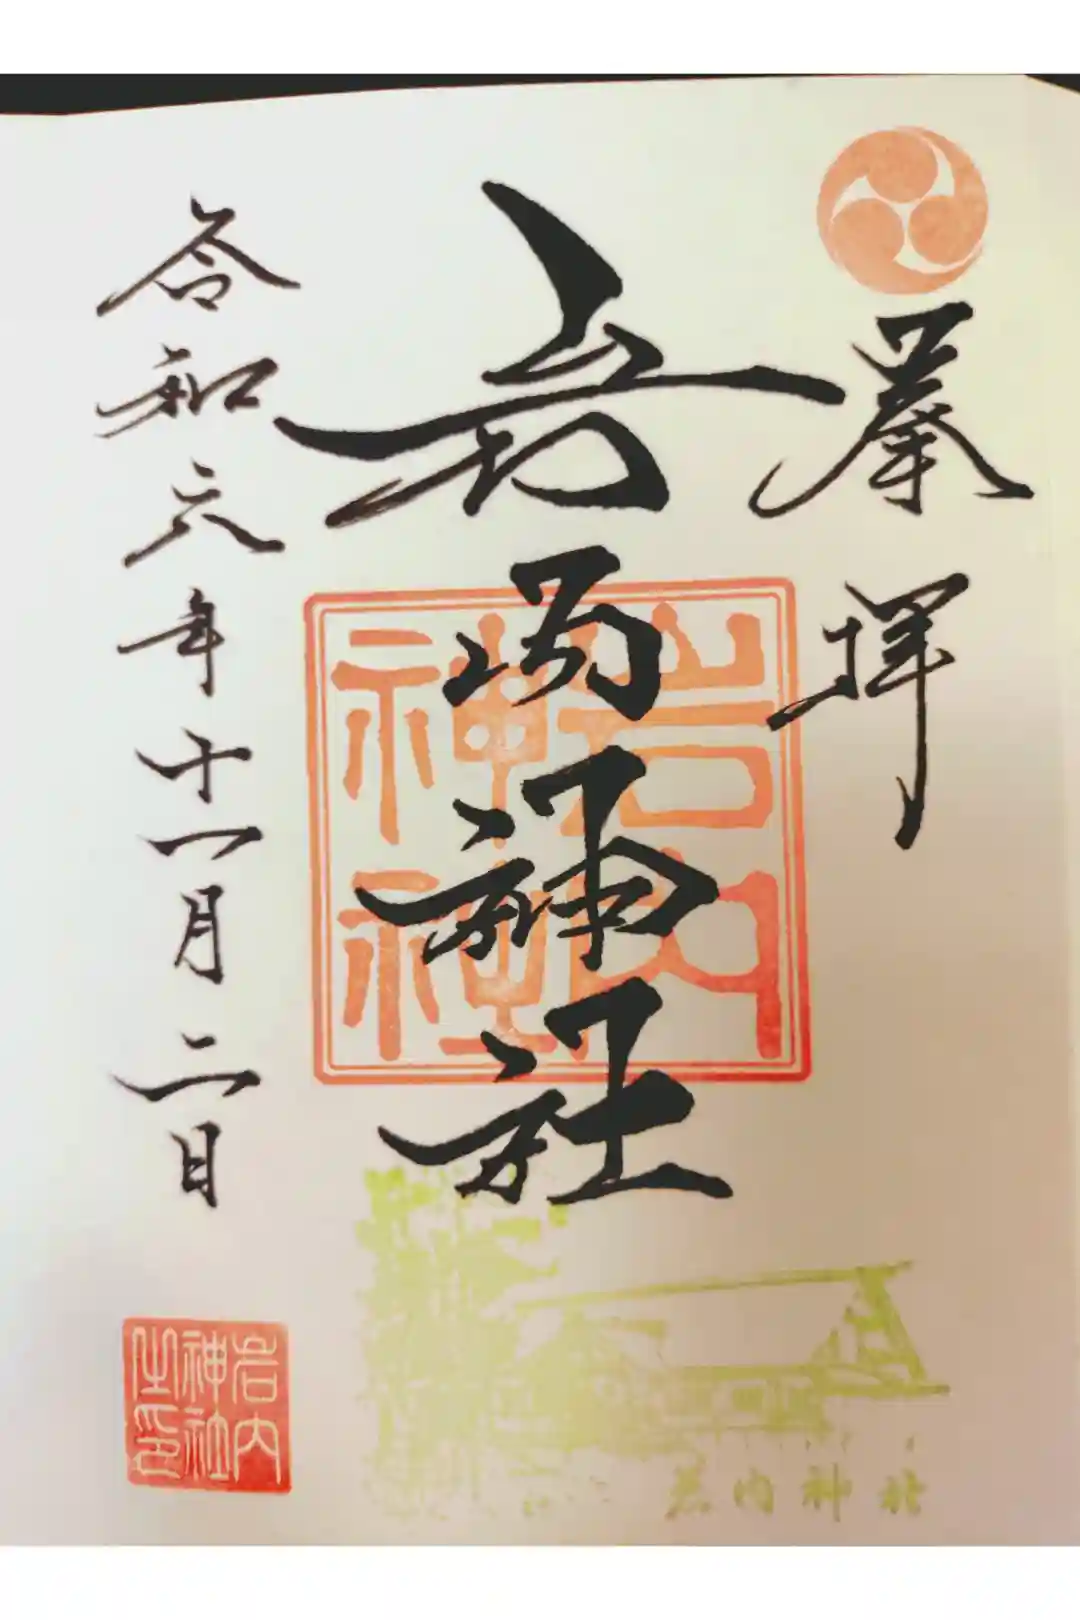 奉拝
岩内神社
岩内神社
令和六年十一月二日
岩内神社之印
岩内神社